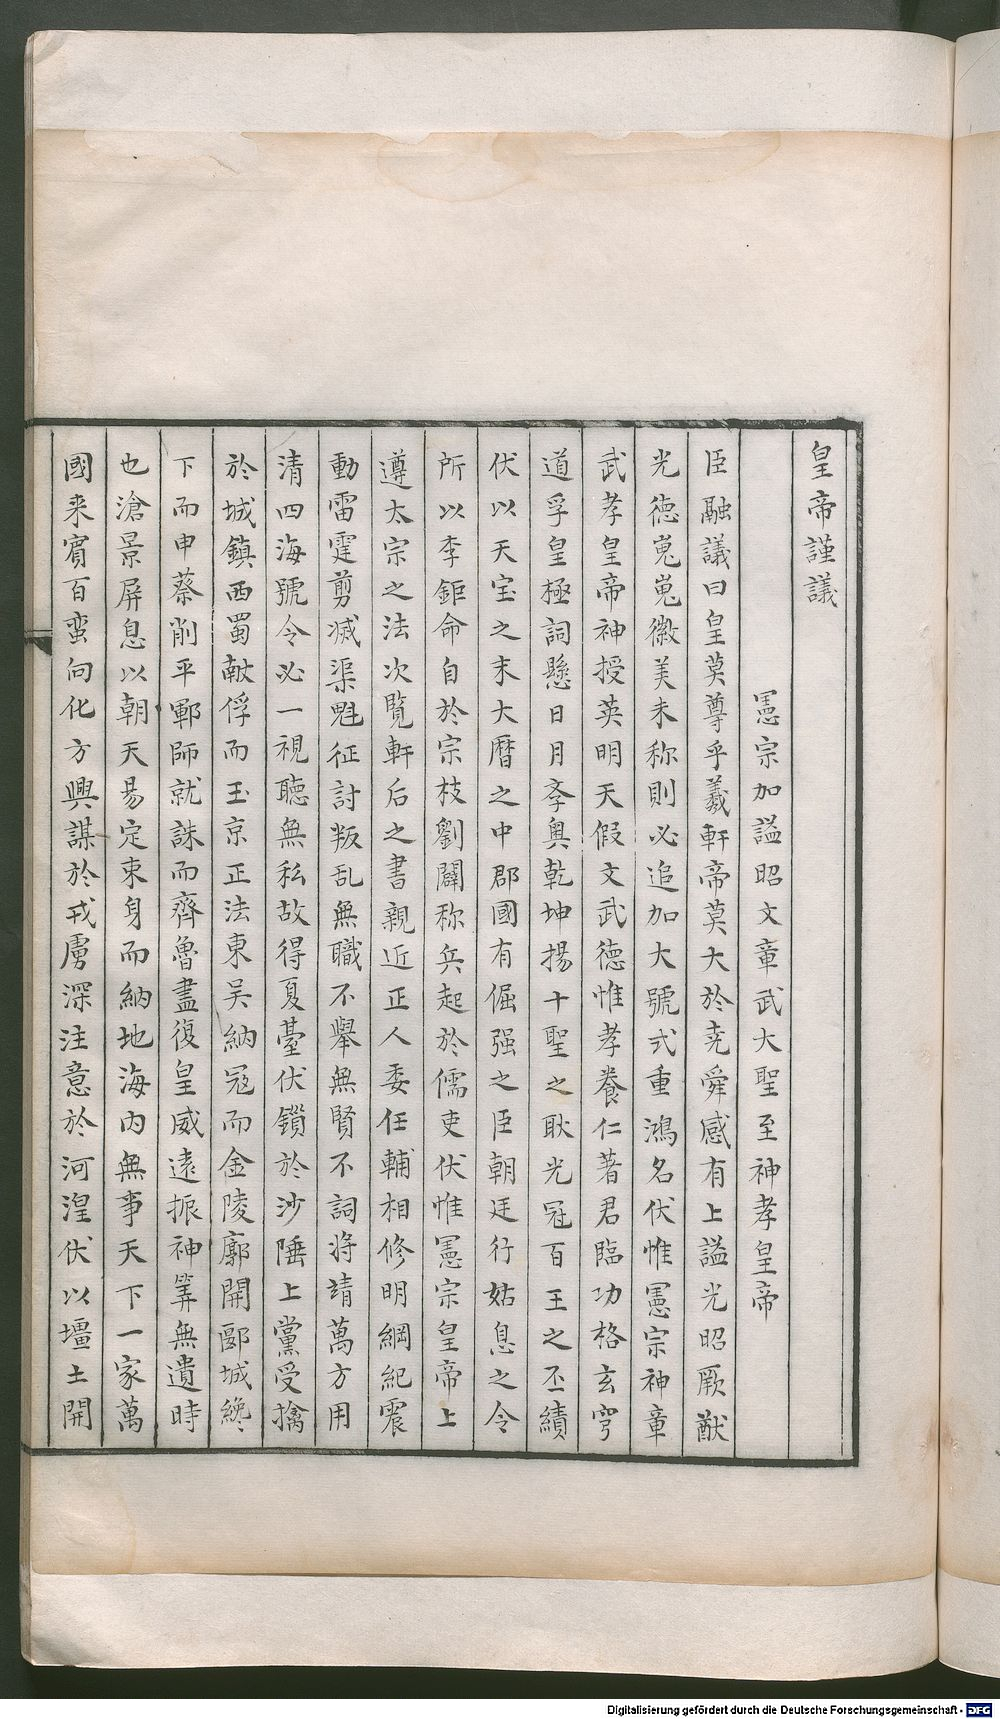 皇帝謹議
憲宗加謚昭文章武大聖至神孝皇帝
臣融議曰皇莫尊乎羲軒帝莫大於堯舜感有上謚光昭厥猷
光德嵬嵬徽美未称則必追加大號式重鴻名伏惟憲宗神章
武孝皇帝神授英明天假文武德惟孝養仁著君臨功格玄穹
道孚皇極詞懸日月奧乾坤揚十聖之耿光冠百王之丕績
伏以天宝之末大曆之中郡國有倔强之臣朝廷行姑息之令
所以李錡命自於宗枝劉闢称兵起於儒吏伏惟憲宗皇帝上
遵太宗之法次覧軒后之書親近正人委任輔相修明綱紀震
動雷霆剪减渠魁征討叛乱無職不舉無賢不詞将靖萬方用
清四海號令必一視聴無私故得夏臺伏鑕於沙陲上黨受擒
於城鎮西蜀献俘而玉京正法東吳納冦而金陵廓開郾城纔
下而申蔡削平鄆師就誅而齊魯盡復皇威遠振神筭無遺時
也滄景屏息以朝天易定束身而納地海内無事天下一家萬
國来賔百蛮向化方興謀於戎虜深注意於河湟伏以壃土開
Digitalisierung gefördert durch die Deutsche Forschungsgemeinschaft - DFG